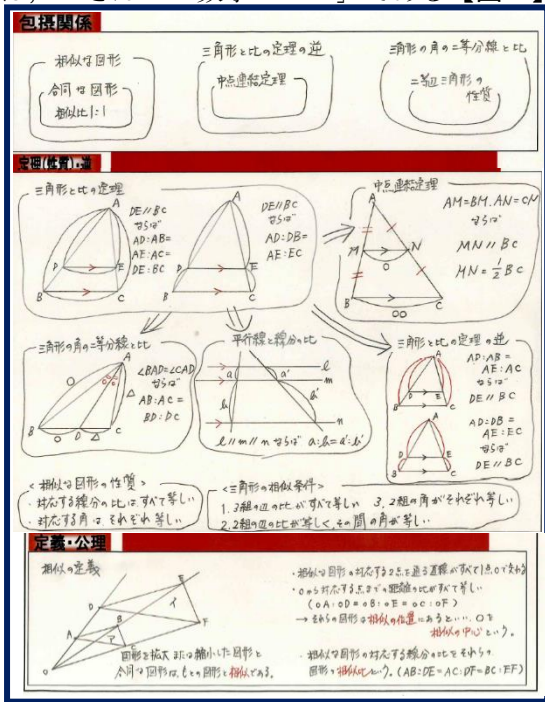 包摂関係
相似な図形
合同な図形
相似比1:1
三角形と比の定理の逆
中点連結定理
三角形の角の二等分線と比
二等辺三角形の
性質
定理(性質)・逆
三角形と比の定理
A
DE//BC
ならば
AD:AB=
AE:AC=
DE:BC
D
E
B
C
A
DE//BC
ならば
AD:DB=
AE:EC
D
E
B
C
中点連結定理
A
AM=BM,AN=CN
ならば
MN//BC
MN=1/2BC
M
N
B
C
三角形の角の二等分線と比
A
∠BAD=∠CAD
ならば
AB:AC=
BD:DC
B
D
C
平行線と線分の比
a
a'
b
b'
l
m
n
l//m//nならばa:b=a':b'
三角形と比の定理の逆
A
AD:AB=
AE:AC
ならば
DE//BC
D
E
B
C
A
AD:DB=
AE:EC
ならば
DE//BC
D
E
B
C
<相似な図形の性質>
・対応する線分の比は、すべて等しい
・対応する角は、それぞれ等しい
<三角形の相似条件>
1.3組の辺の比がすべて等しい
3.2組の角がそれぞれ等しい
2.2組の辺の比が等しく、その間の角が等しい
定義・公理
相似の定義
E
D
イ
B
F
A
ア
C
O
図形を拡大または縮小した図形と
合同な図形は、もとの図形と相似である。
・相似な図形の対応する2点を通る直線がすべて1点Oで交わる
・Oから対応する点までの距離の比がすべて等しい
(OA:OD=OB:OE=OC:OF)
→それらの図形は相似の位置にあるといい、Oを
相似の中心という。
・相似な図形の対応する線分の比をそれらの
図形の相似比という。(AB:DE=AC:DF=BC:EF)